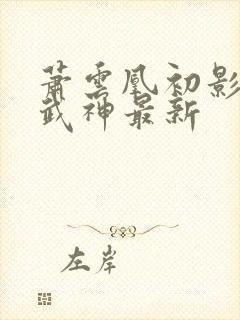 萧云凰初影
武神最新
左岸